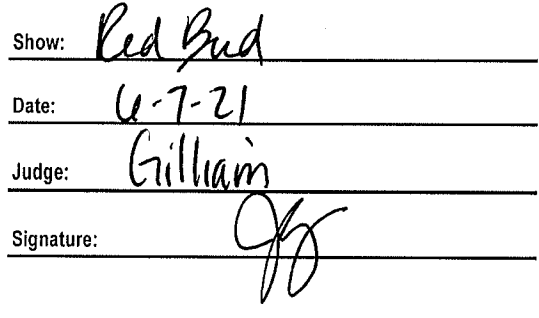 Show: Red Bud
Date: 6-7-21
Judge: Gilliam
Signature: